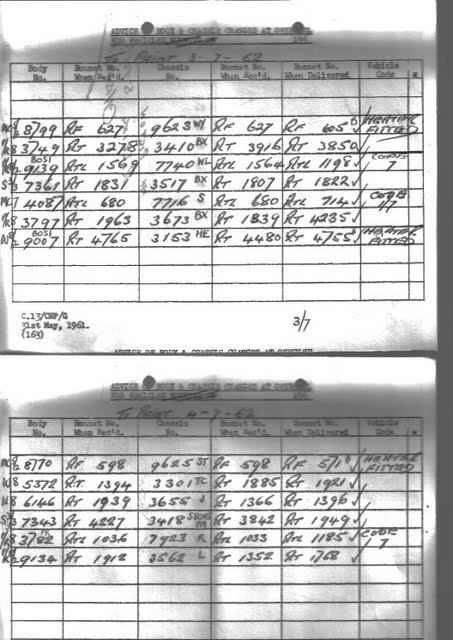 ADVICE OF BODY & CHASSIS CHANGES AT OVERHAUL
FOR VEHICLES 196
To Paint 3-7-62
Body No. Bonnet No. When Rec'd. Chassis No. Bonnet No. When Rec'd. Bonnet No. When Delivered Vehicle Code *
8799 RF 627 9623 WY RF 627 RF 605 B HEATER FITTED
3749 RT 3278 3410 BX RT 3916 RT 3850
BOSI 9139 RTL 1569 7740 WL RTL 1564 RTL 1198 CODE 7
7361 RT 1831 3517 BX RT 1807 RT 1822
4087 RTL 680 7716 S RTL 680 RTL 714 CODE 11
3797 RT 1963 3673 BX RT 1839 RT 4235
BOSI 9007 RT 4765 3153 HE RT 4480 RT 4755 HEATER FITTED
C.13/CHP/G
31st May, 1961.
(163)
3/7
ADVICE OF BODY & CHASSIS CHANGES AT OVERHAUL
ADVICE OF BODY & CHASSIS CHANGES AT OVERHAUL
FOR VEHICLES 196
To Paint 4-7-62
Body No. Bonnet No. When Rec'd. Chassis No. Bonnet No. When Rec'd. Bonnet No. When Delivered Vehicle Code *
8770 RF 598 9625 ST RF 598 RF 571 B HEATER FITTED
5372 RT 1394 3301 TC RT 1885 RT 1921
6146 RT 1939 3655 J RT 1366 RT 1396
7343 RT 4227 3418 RT 3842 RT 1949
3782 RTL 1036 7923 K RTL 1033 RTL 1185 CODE 7
9134 RT 1912 3562 L RT 1352 RT 1768